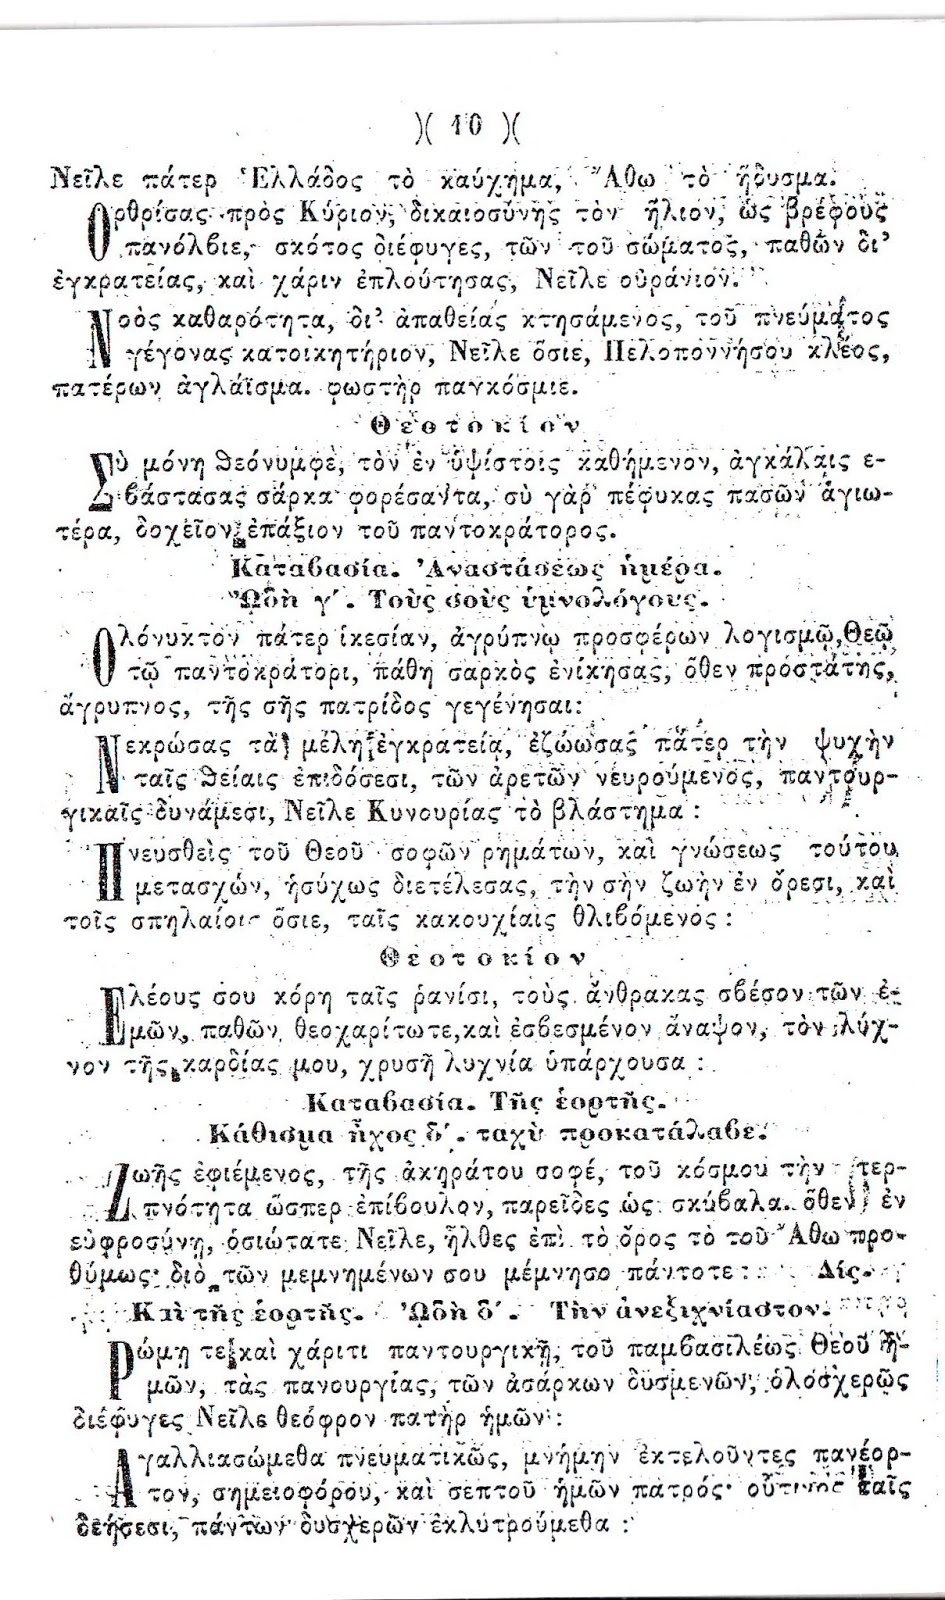 )( 10 )(
Νεῖλε πάτερ Ἑλλάδος τὸ καύχημα, Ἄθω τὸ ἥδυσμα.
Ορθρίσας πρὸς Κύριον, δικαιοσύνης τὸν ἥλιον, ὡς βρέφους
πανόλβιε, σκότος διέφυγες, τῶν τοῦ σώματος, παθῶν δι'
ἐγκρατείας, καὶ χάριν ἐπλούτησας, Νεῖλε οὐράνιον.
Νοὸς καθαρότητα, δι' ἀπαθείας κτησάμενος, τοῦ πνεύματος
γέγονας κατοικητήριον, Νεῖλε ὅσιε, Πελοποννήσου κλέος,
πατέρων ἀγλάϊσμα. φωστὴρ παγκόσμιε.
Θεοτοκίον
Σὺ μόνη θεόνυμφε, τὸν ἐν ὑψίστοις καθήμενον, ἀγκάλαις ἐ-
βάστασας σάρκα φορέσαντα, σὺ γὰρ πέφυκας πασῶν ἁγιω-
τέρα, δοχεῖον ἐπάξιον τοῦ παντοκράτορος.
Καταβασία. Ἀναστάσεως ἡμέρα.
ᾨδὴ γ'. Τοὺς σοὺς ὑμνολόγους.
Ολόνυκτον πάτερ ἱκεσίαν, ἀγρύπνῳ προσφέρων λογισμῷ, Θεῷ
τῷ παντοκράτορι, πάθη σαρκὸς ἐνίκησας, ὅθεν προστάτης,
ἄγρυπνος, τῆς σῆς πατρίδος γεγένησαι:
Νεκρώσας τὰ μέλη ἐγκρατείᾳ, ἐζώωσας πάτερ τὴν ψυχὴν
ταῖς θείαις ἐπιδόσεσι, τῶν ἀρετῶν νευρούμενος, παντουρ-
γικαῖς δυνάμεσι, Νεῖλε Κυνουρίας τὸ βλάστημα :
Πνευσθεὶς τοῦ Θεοῦ σοφῶν ῥημάτων, καὶ γνώσεως τούτου
μετασχὼν, ἡσύχως διετέλεσας, τὴν σὴν ζωὴν ἐν ὄρεσι, καὶ
τοῖς σπηλαίοις ὅσιε, ταῖς κακουχίαις θλιβόμενος :
Θεοτοκίον
Ελέους σου κόρη ταῖς ῥανίσι, τοὺς ἄνθρακας σβέσον τῶν ἐ-
μῶν, παθῶν θεοχαρίτωτε, καὶ ἐσβεσμένον ἄναψον, τὸν λύχ-
νον τῆς καρδίας μου, χρυσῆ λυχνία ὑπάρχουσα :
Καταβασία. Τῆς ἑορτῆς.
Κάθισμα ἦχος δ'. ταχὺ προκατάλαβε.
Ζωῆς ἐφιέμενος, τῆς ἀκηράτου σοφέ, τοῦ κόσμου τὴν τερ-
πνότητα ὥσπερ ἐπίβουλον, παρεῖδες ὡς σκύβαλα. ὅθεν ἐν
εὐφροσύνῃ, ὁσιώτατε Νεῖλε, ἦλθες ἐπὶ τὸ ὄρος τὸ τοῦ Ἄθω προ-
θύμως· διὸ τῶν μεμνημένων σου μέμνησο πάντοτε : Δίς.
Καὶ τῆς ἑορτῆς. ᾨδὴ δ'. Τὴν ἀνεξιχνίαστον.
Ρώμῃ τε καὶ χάριτι παντουργικῇ, τοῦ παμβασιλέως Θεοῦ ἡ-
μῶν, τὰς πανουργίας, τῶν ἀσάρκων δυσμενῶν, ὁλοσχερῶς
διέφυγες Νεῖλε θεόφρον πατὴρ ἡμῶν :
Αγαλλιασώμεθα πνευματικῶς, μνήμην ἐκτελοῦντες πανέορ-
τον, σημειοφόρου, καὶ σεπτοῦ ἡμῶν πατρός· οὗτινος ταῖς
δεήσεσι, πάντων δυσχερῶν ἐκλυτρούμεθα :